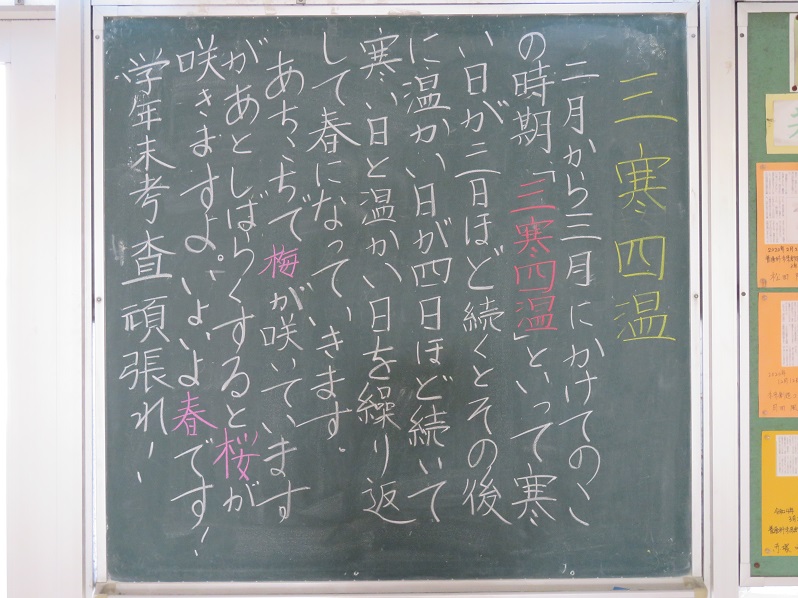 三寒四温
二月から三月にかけてのこ
の時期、「三寒四温」といって寒
い日が三日ほど続くとその後
に温かい日が四日ほど続いて
寒い日と温かい日を繰り返
して春になっていきます。
あちこちで梅が咲いています
があとしばらくすると桜が
咲きますよ。いよいよ春です!
学年末考査頑張れ!